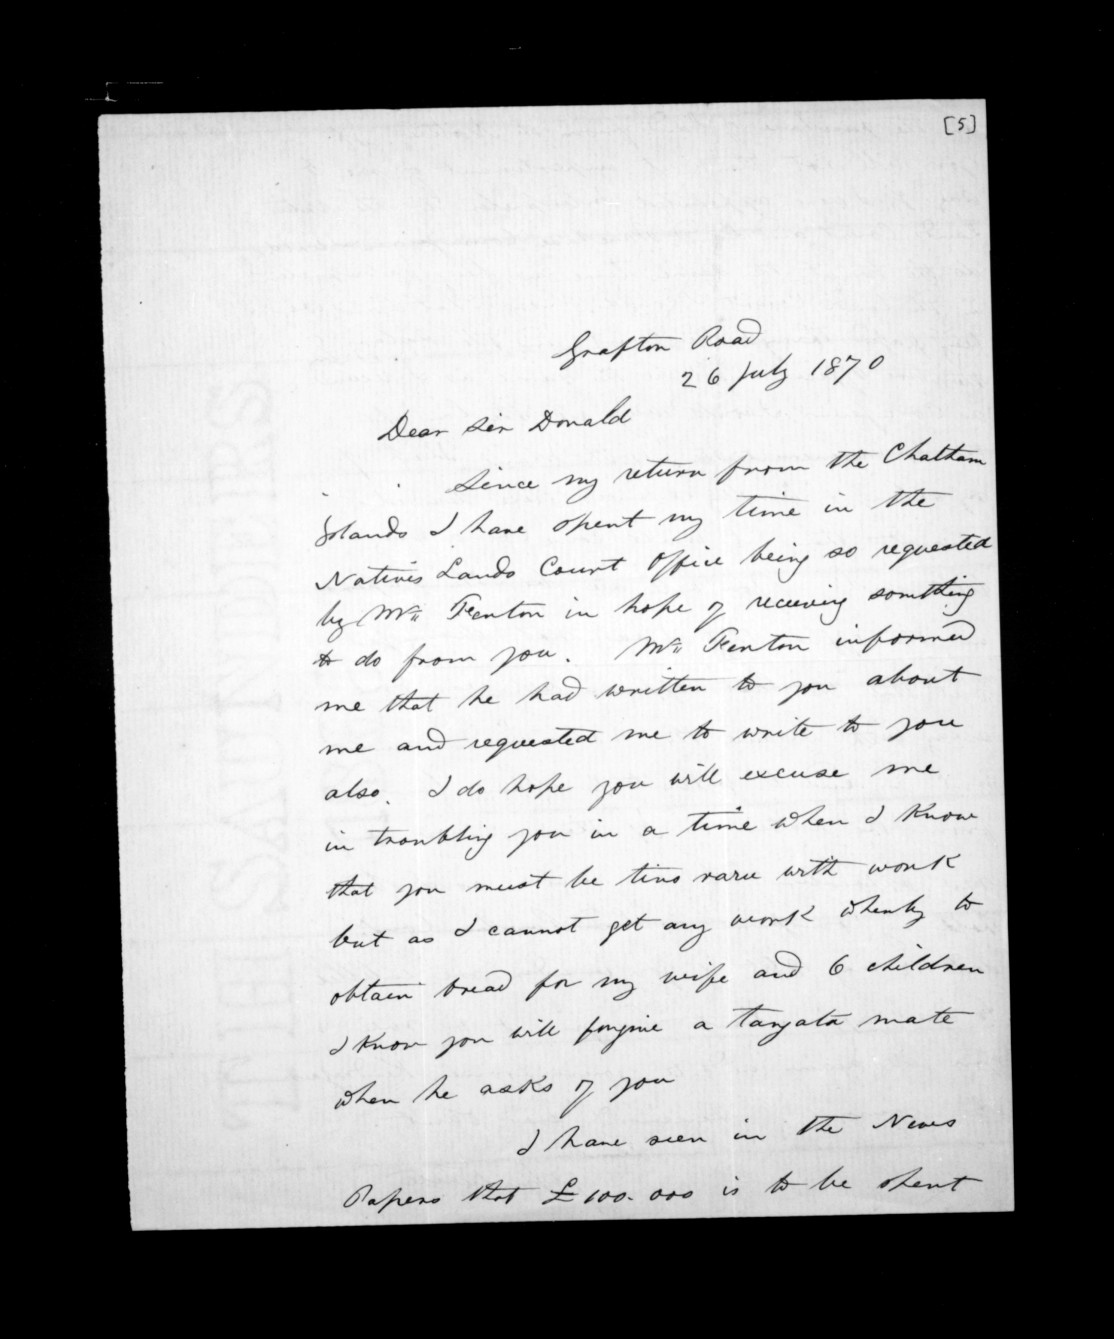 [5]
Grafton Road
26 July 1870
Dear Sir Donald
Since my return from the Chatham
Islands I have spent my time in the
Natives Lands Court Office being so requested
by Mr. Fenton in hope of receiving something
to do from you. Mr. Fenton informed
me that he had written to you about
me and requested me to write to you
also. I do hope you will excuse me
in troubling you in a time when I know
that you must be with work
but as I cannot get any work whereby to
obtain bread for my wife and 6 children
I know you will forgive a tangata mate
when he asks of you
I have seen in the News
Papers that £100.000 is to be spent